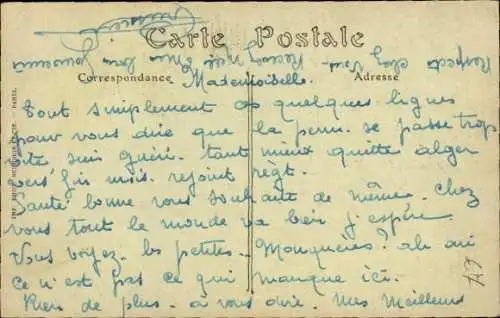 Carte Postale
Correspondance
Adresse
Mademoiselle.
Tout simplement ces quelques lignes
pour vous dire que la perm. se passe trop
vite suis guéri. tant mieux quitte alger
vers fin mois. rejoint régt.
Santé bonne vous souhaite de même. chez
vous tout le monde va bien j'espère.
Vous voyez. les petites Mouquères! ah oui
ce n'est pas ce qui manque ici.
Rien de plus. à vous dire. Mes Meilleurs
Respects chez vous. Recevez Mon bon souvenir